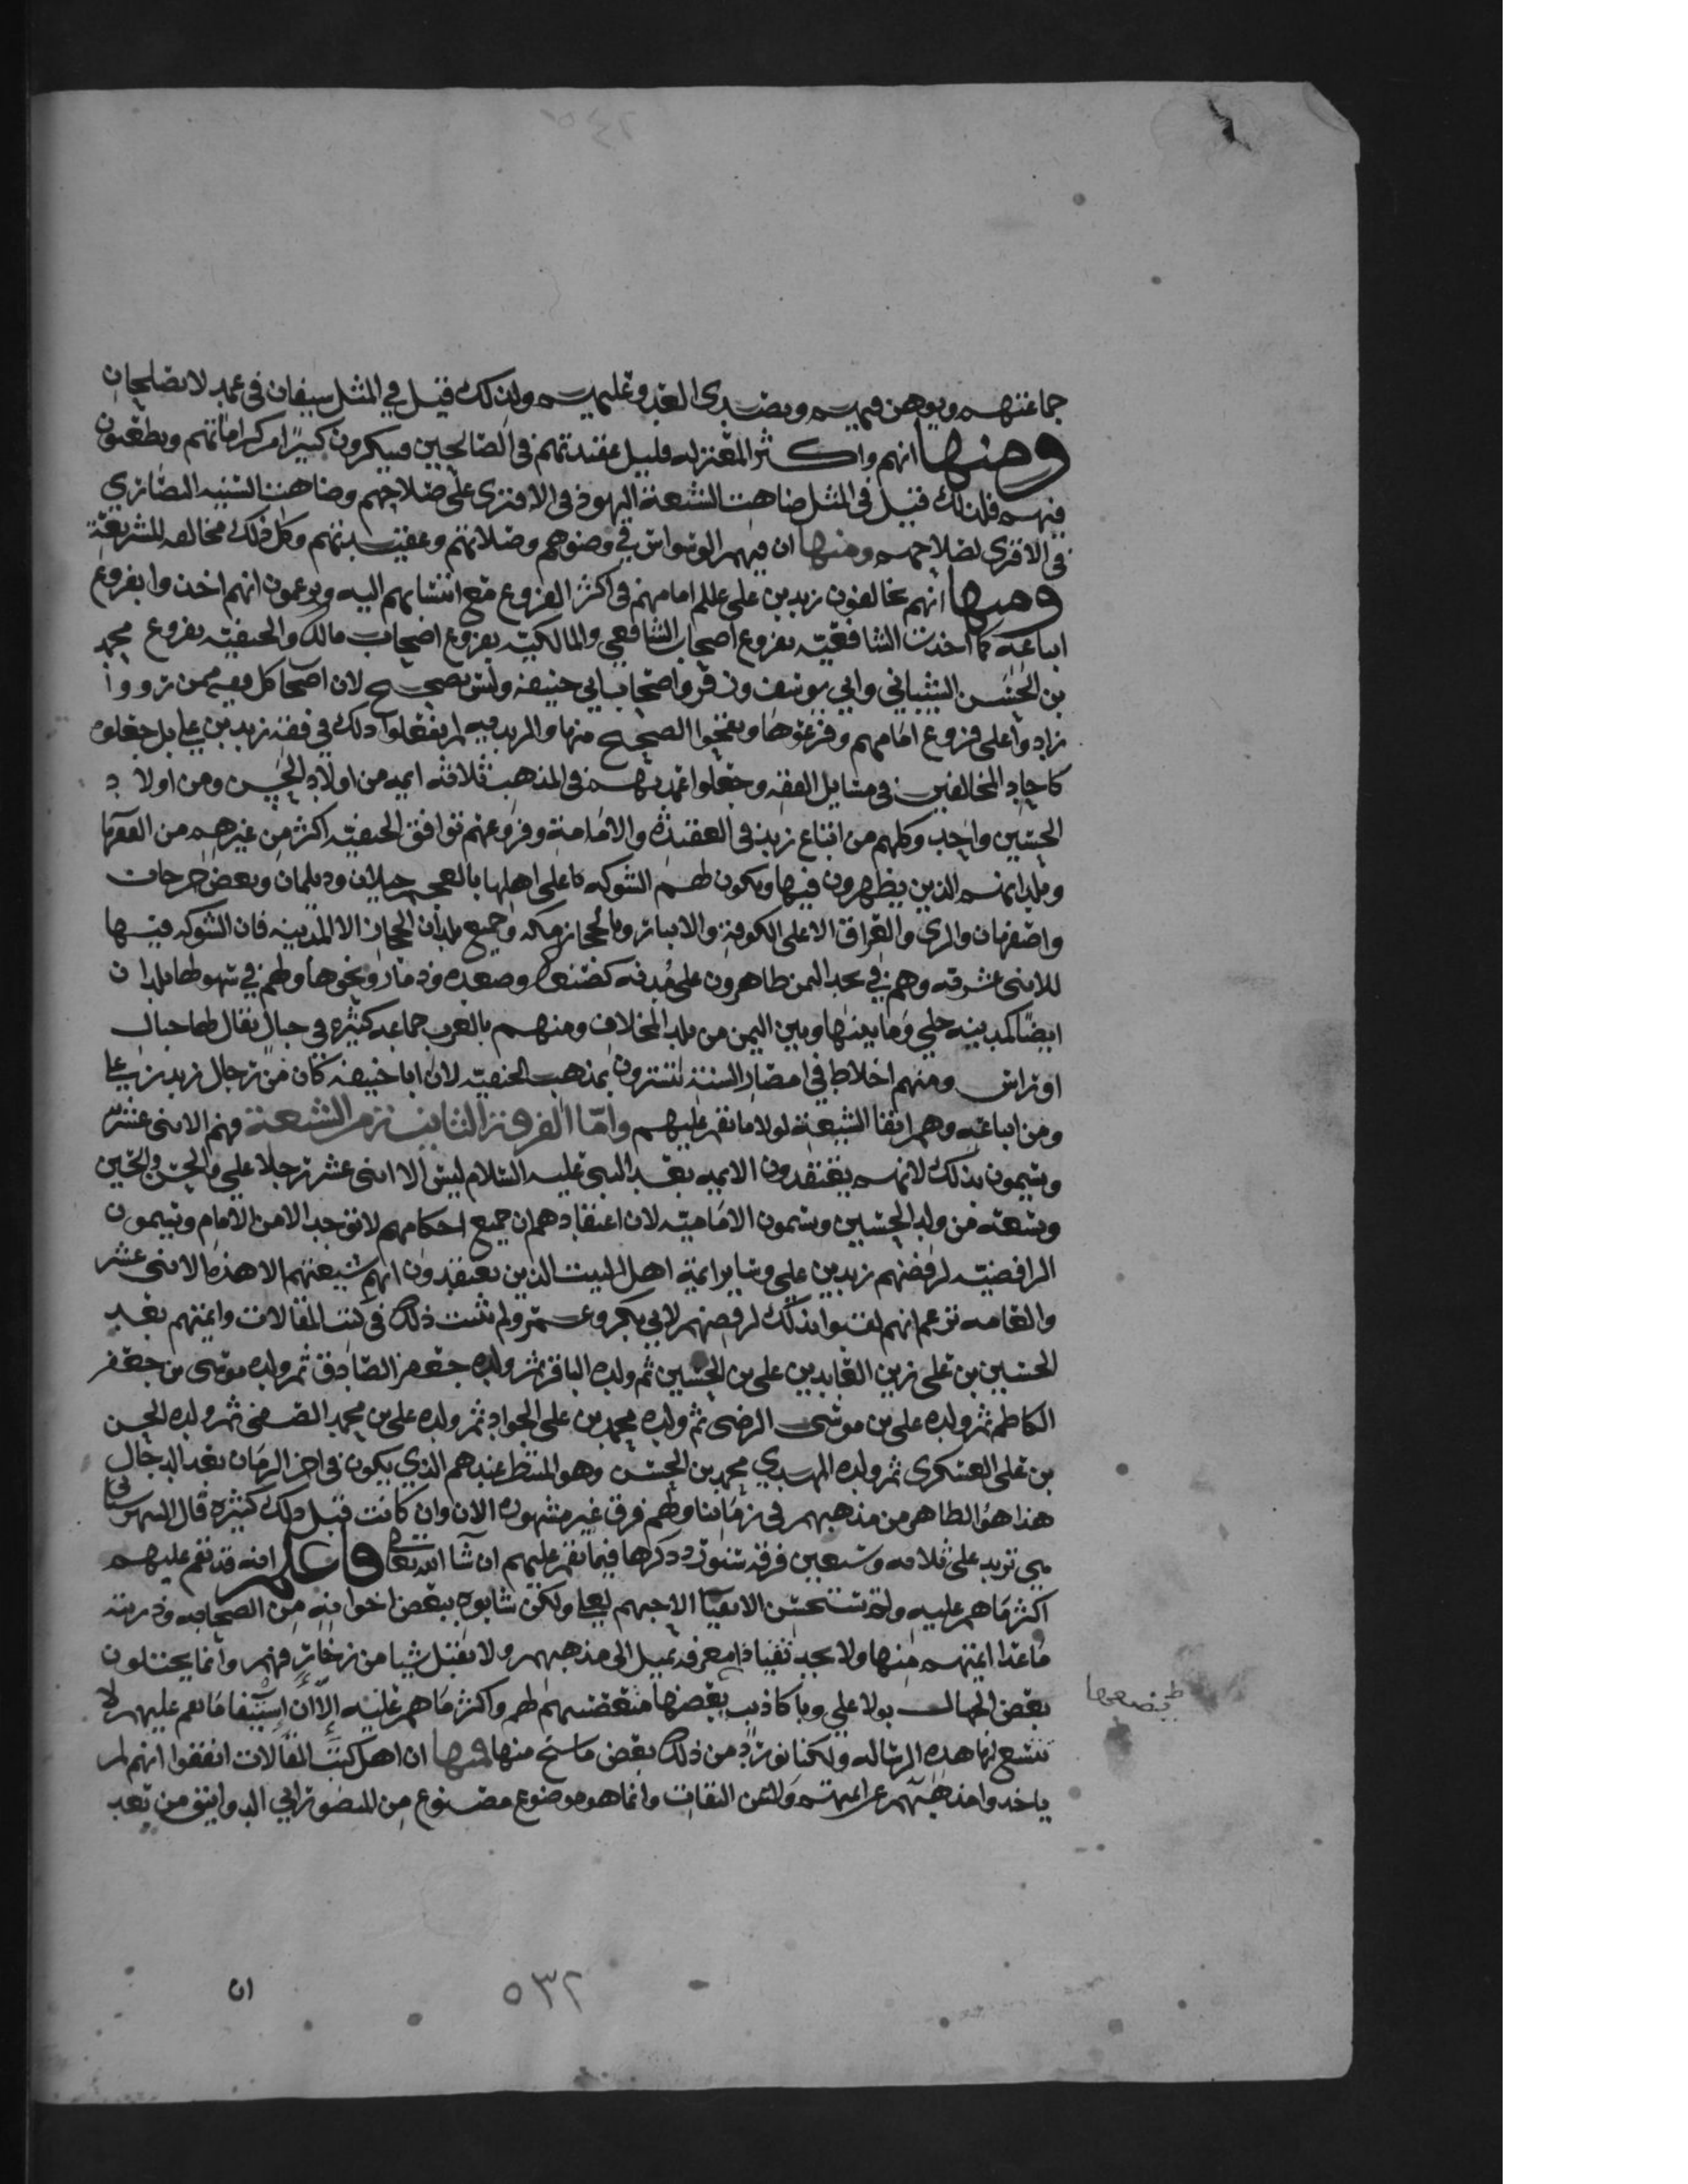 جماعتهم ويوهن فيهم ويصدى العدو عليهم ولذلك قيل في المثل سيفان في غمد لا يصلحان
ومنها انهم واكثر المعتزله قليل عقيدتهم في الصالحين فينكرون كثيرًا من كراماتهم ويطعنون
فيهم فلذلك قيل في المثل ضاهت الشيعة اليهود في الافترى على صلاحهم وضاهت السنيه النصارى
في الافترى لصلاحهم ومنها ان فيهم الوسواس في وضوهم وصلاتهم وعقيدتهم وكل ذلك مخالفه للشريعة
ومنها انهم يخالفون زيد بن علي علم امامهم في اكثر الفروع مع انتسابهم اليه ويزعمون انهم اخذوا بفروع
اتباعه كما اخذت الشافعيه بفروع اصحاب الشافعي والمالكيه بفروع اصحاب مالك والحنفيه بفروع محمد
بن الحسن الشيباني وابي يوسف وزفر واصحاب ابي حنيفه وليس بصحيح لان اصحاب كل فقيه ممن رووا
زادوا على فروع امامهم وفرعوها ونقحوا الصحيح منها والمزيد فيه لم يفعلوا ذلك في فقه زيد بن علي بل جعلوه
كاحاد المخالفين في مسايل الفقه وجعلوا عمدتهم في المذهب ثلاثه ايمه من اولاد الحسن ومن اولاد
الحسين واحد وكلهم من اتباع زيد في العقيدة والامامة وفروعهم توافق الحنفيه اكثر من غيرهم من الفقها
وبلدانهم الذين يظهرون فيها ويكون لهم الشوكه على اهلها بالعجم جيلان وديلمان وبعض جرجان
واصفهان والري والعراق الا على الكوفة والانبار وبالحجاز مكه وجميع بلدان الحجاز الا المدينه فان الشوكه فيها
للاثنى عشريه وهم في نجد اليمن ظاهرون على مدنه كصنعا وصعده وذمار ونحوها ولهم في تهوطها بلدان
ايضًا كمدينه حلي وما بينها وبين اليمن من بلد المخلاف ومنهم بالغرب جماعه كثيره في جبال يقال لها جبال
اوراس ومنهم اخلاط في امصار السنة يتسترون بمذهب الحنفيه لان ابا حنيفه كان من رجال زيد بن علي
ومن اتباعه وهم اتقا الشيعة لولا ما نقم عليهم واما الفرقة الثانية من الشيعة فهم الاثنى عشر
ويسمون بذلك لانهم يعتقدون الايمه بعد النبي عليه السلام ليس الا اثنى عشر رجلا علي والحسن والحسين
وتسعه من ولد الحسين ويسمون الاماميه لان اعتقادهم ان جميع احكامهم لا توجد الا من الامام ويسمون
الرافضيه لرفضهم زيد بن علي وساير ايمة اهل البيت الذين يعتقدون انهم شيعتهم الا هذه الاثنى عشر
والعامه تزعم انهم لقبوا بذلك لرفضهم لابي بكر وعمر ولم يثبت ذلك في كتب المقالات وايمتهم بعد
الحسين بن علي زين العابدين علي بن الحسين ثم ولده الباقر ثم ولده جعفر الصادق ثم ولده موسى بن جعفر
الكاظم ثم ولده علي بن موسى الرضى ثم ولده محمد بن علي الجواد ثم ولده علي بن محمد ثم ولده الحسن
بن علي العسكري ثم ولده المهدي محمد بن الحسن وهو المنتظر عندهم الذي يكون في اخر الزمان بعد الدجال
هذا هو الظاهر من مذهبهم في زماننا ولهم فرق غير مشهوره الان وان كانت قبل ذلك كثيره قال الشهرستاني
تزيد على ثلاثه وسبعين فرقه سنورد ذكرها فيما نقم عليهم ان شا الله تعالى واعلم انه قد نقم عليهم
اكثر ما هم عليه ولم تستحسن الاتقيا الا حبهم لعلي ولكن شابوه ببغض اخوانه من الصحابه وذريته
ما عدا ايمتهم منها ولا يجد تقيا ذا معرفه يميل الى مذهبهم ولا يقبل شيا من زخارفهم وانما يختلون
بعض الجهال بولا علي وباكاذيب بعضها متعصبهم لهم واكثر ما هم عليه الا ان استيفا ما نقم عليهم لا
تتسع لها هذه الرساله ولكنا نورد من ذلك بعض ما سنح منها فمنها ان اهل كتب المقالات اتفقوا انهم لم
ياخذوا مذهبهم عن ايمتهم ولا عن الثقات وانما هو موضوع مصنوع من المنصور ابي الدوانيق من بعد
ان
٥٣٢